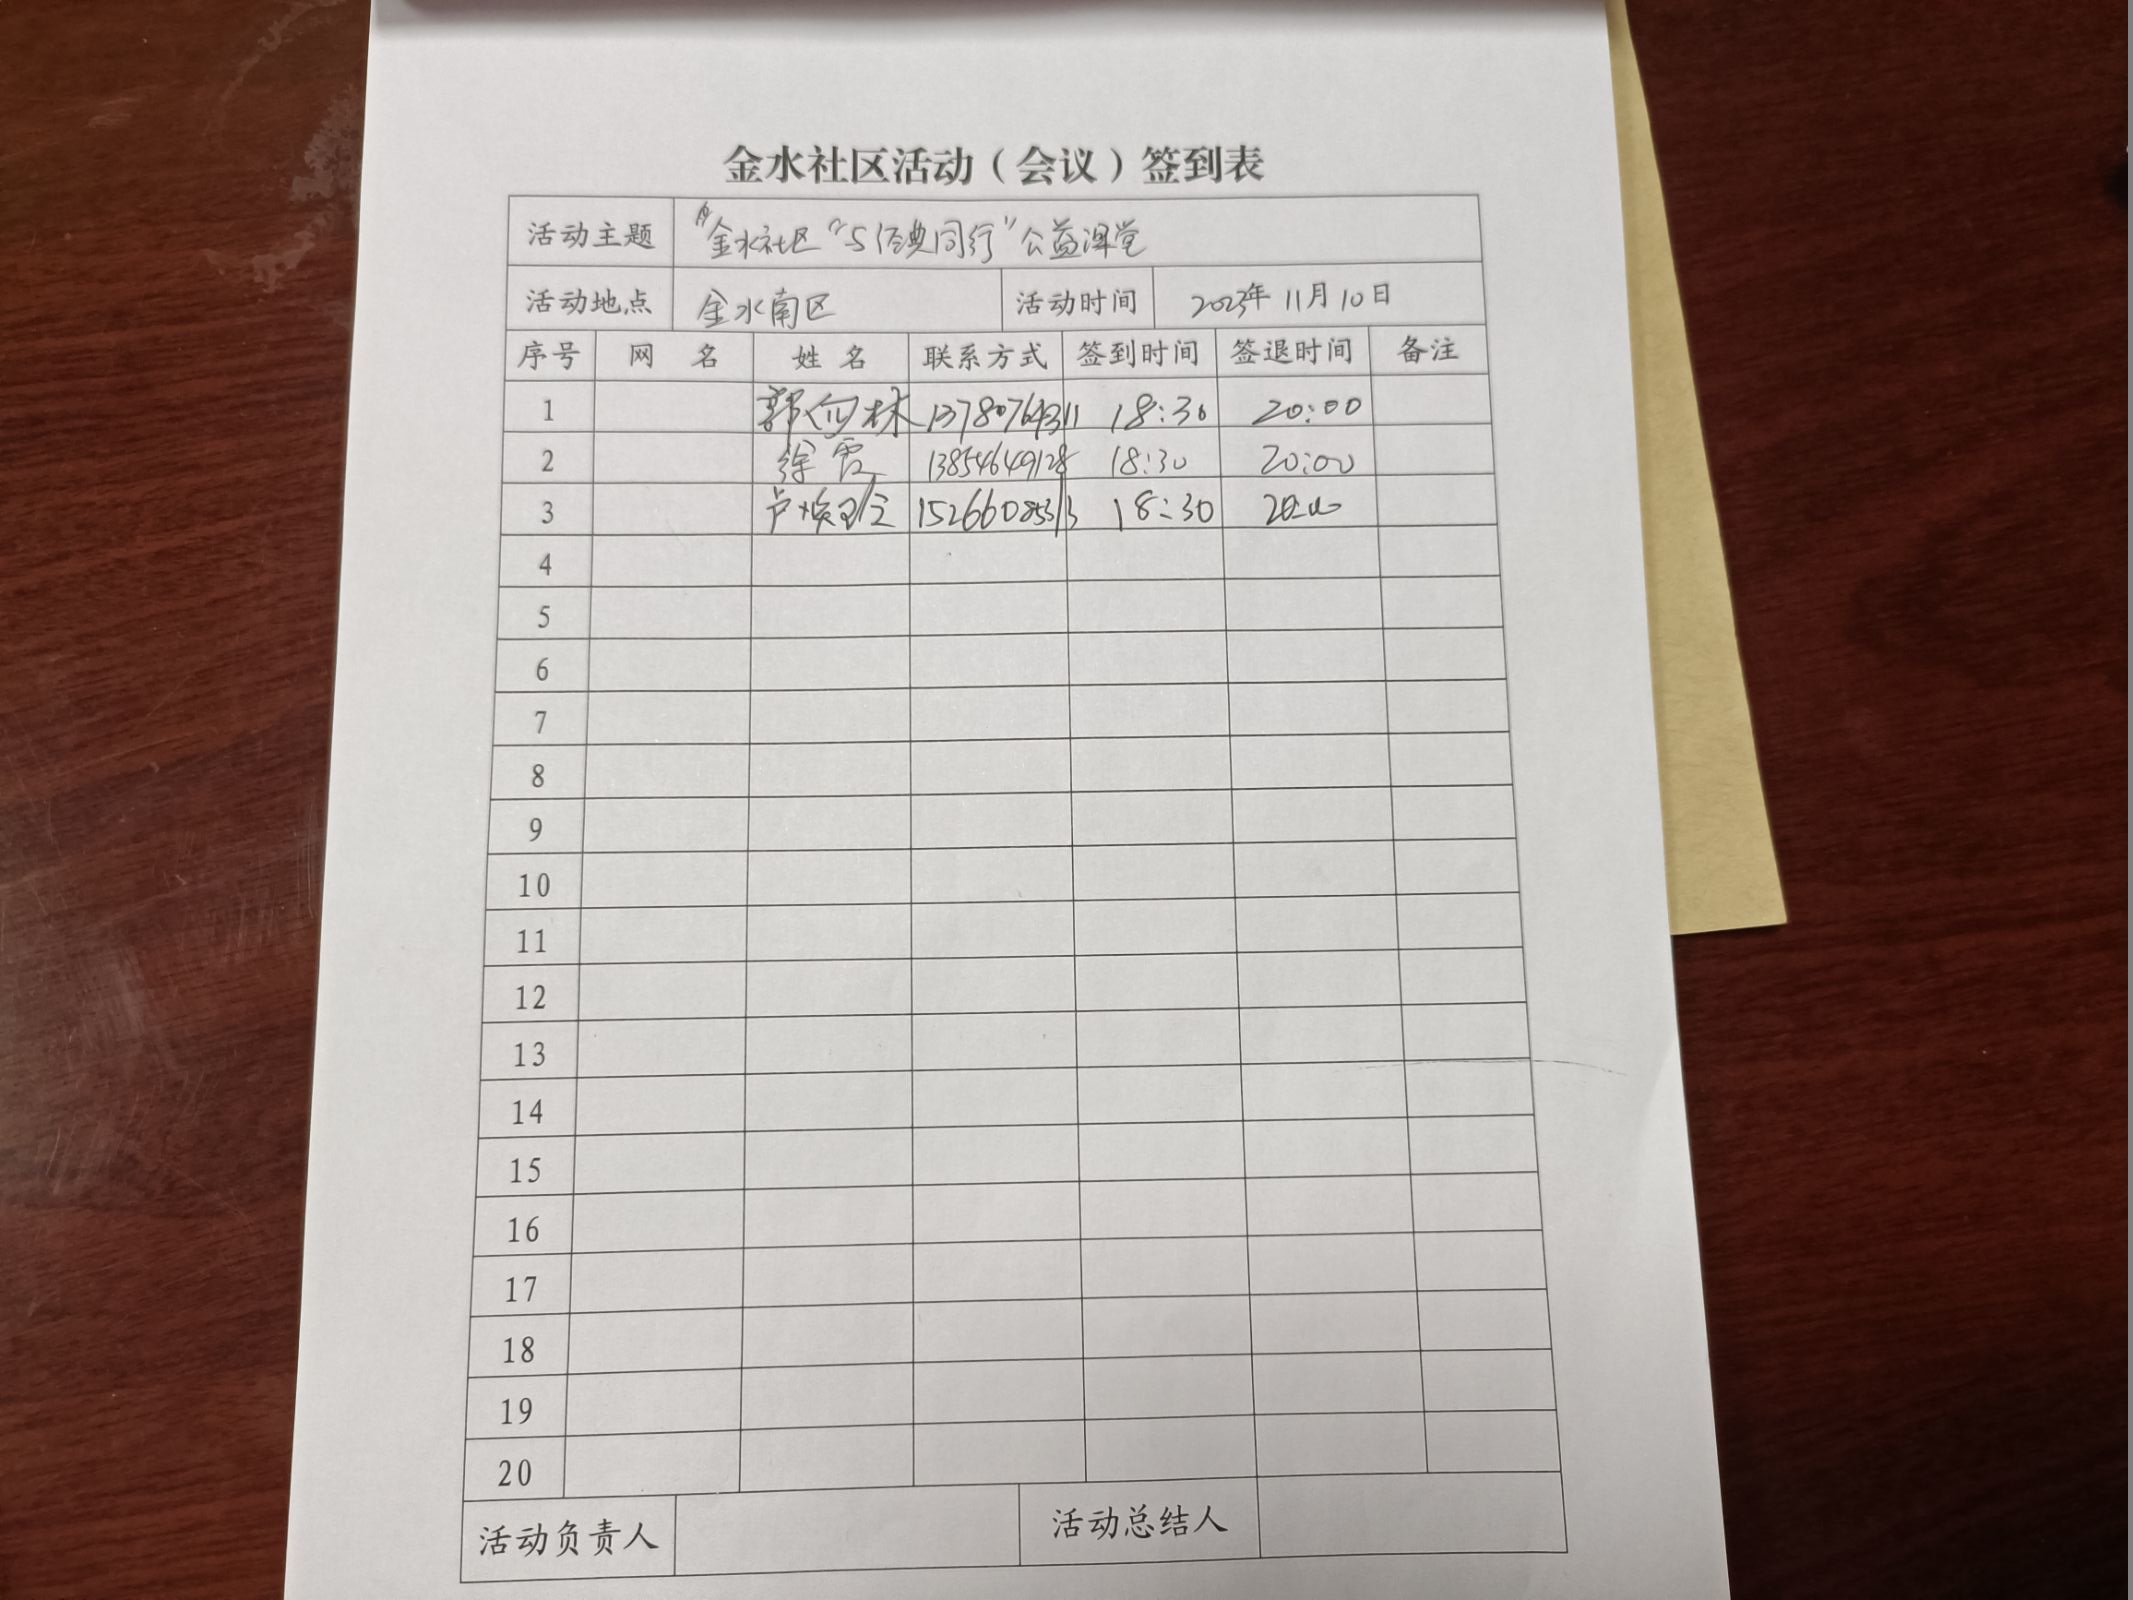 金水社区活动（会议）签到表
活动主题 "金水社区"与经典同行"公益课堂
活动地点 金水南区 活动时间 2023年11月10日
序号 网 名 姓 名 联系方式 签到时间 签退时间 备注
1 郭向林 13780764311 18:30 20:00
2 徐霞 13854649128 18:30 20:00
3 卢 15266085313 18:30 20:00
4
5
6
7
8
9
10
11
12
13
14
15
16
17
18
19
20
活动负责人 活动总结人